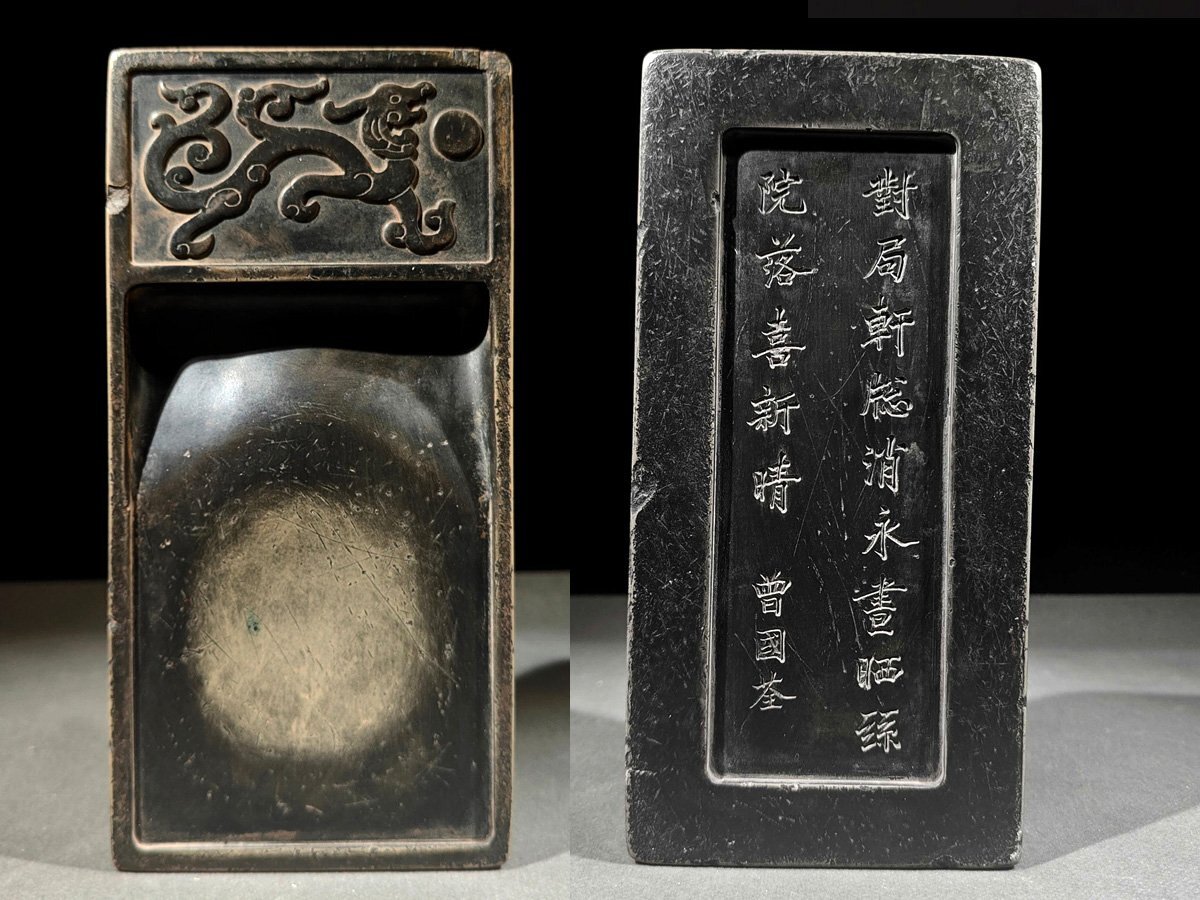 對局軒牕消永晝晒絲
院落喜新晴
曾國荃